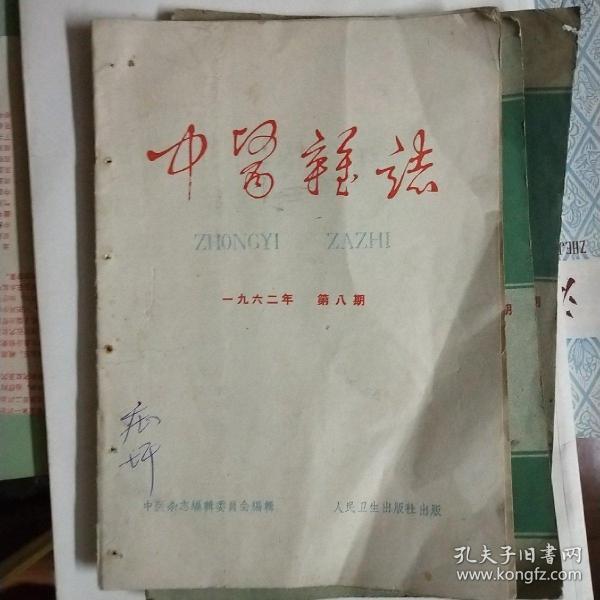 中醫雜誌
ZHONGYI ZAZHI
一九六二年 第八期
中医杂志編輯委員会編輯 人民卫生出版社出版
ZHEJ
期
期
孔夫子旧书网
www.kongfz.com